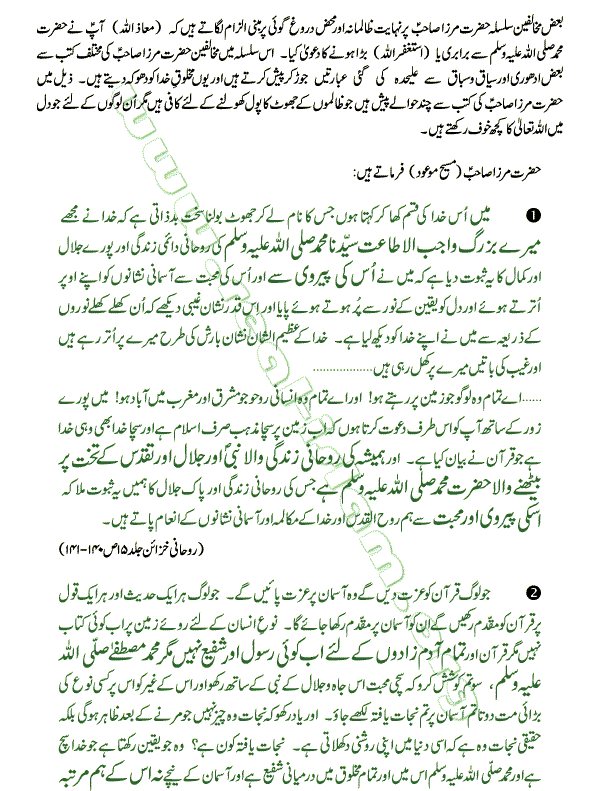 بعض مخالفین سلسلہ حضرت مرزا صاحبؑ پر نہایت ظالمانہ اور محض دروغ گوئی پر مبنی الزام لگاتے ہیں کہ (معاذ اللہ) آپؑ نے حضرت
محمد صلی اللہ علیہ وسلم سے برابری یا (استغفر اللہ) بڑا ہونے کا دعویٰ کیا۔ اس سلسلہ میں مخالفین حضرت مرزا صاحبؑ کی مختلف کتب سے
بعض ادھوری اور سیاق و سباق سے علیحدہ کی گئی عبارتیں جوڑ کر پیش کرتے ہیں اور یوں مخلوقِ خدا کو دھوکہ دیتے ہیں۔ ذیل میں
حضرت مرزا صاحبؑ کی کتب سے چند حوالے پیش ہیں جو ظالموں کے جھوٹ کا پول کھولنے کے لئے کافی ہیں مگر اُن لوگوں کے لئے جو دل
میں اللہ تعالیٰ کا کچھ خوف رکھتے ہیں۔
حضرت مرزا صاحبؑ (مسیح موعود) فرماتے ہیں:
❶ میں اُس خدا کی قسم کھا کر کہتا ہوں جس کا نام لے کر جھوٹ بولنا سخت بدذاتی ہے کہ خدا نے مجھے
میرے بزرگ واجب الاطاعت سیّدنا محمد صلی اللہ علیہ وسلم کی روحانی دائمی زندگی اور پورے جلال
اور کمال کا یہ ثبوت دیا ہے کہ میں نے اُس کی پیروی سے اور اُس کی محبت سے آسمانی نشانوں کو اپنے اوپر
اُترتے ہوئے اور دل کو یقین کے نور سے پُر ہوتے ہوئے پایا اور اِس قدر نشان غیبی دیکھے کہ اُن کھلے کھلے نوروں
کے ذریعہ سے میں نے اپنے خدا کو دیکھ لیا ہے۔ خدا کے عظیم الشان نشان بارش کی طرح میرے پر اُتر رہے ہیں
اور غیب کی باتیں میرے پر کھل رہی ہیں....................
......اے تمام وہ لوگو جو زمین پر رہتے ہو! اور اے تمام وہ انسانی روحو جو مشرق اور مغرب میں آباد ہو! میں پورے
زور کے ساتھ آپ کو اس طرف دعوت کرتا ہوں کہ اب زمین پر سچا مذہب صرف اسلام ہے اور سچا خدا بھی وہی خدا
ہے جو قرآن نے بیان کیا ہے۔ اور ہمیشہ کی روحانی زندگی والا نبی اور جلال اور تقدس کے تخت پر
بیٹھنے والا حضرت محمد صلی اللہ علیہ وسلم ہے جس کی روحانی زندگی اور پاک جلال کا ہمیں یہ ثبوت ملا کہ
اسکی پیروی اور محبت سے ہم روح القدس اور خدا کے مکالمہ اور آسمانی نشانوں کے انعام پاتے ہیں۔
(روحانی خزائن جلد ۱۵ ص ۱۴۰-۱۴۱)
❷ جو لوگ قرآن کو عزت دیں گے وہ آسمان پر عزت پائیں گے۔ جو لوگ ہر ایک حدیث اور ہر ایک قول
پر قرآن کو مقدم رکھیں گے ان کو آسمان پر مقدم رکھا جائے گا۔ نوعِ انسان کے لئے روئے زمین پر اب کوئی کتاب
نہیں مگر قرآن اور تمام آدم زادوں کے لئے اب کوئی رسول اور شفیع نہیں مگر محمد مصطفےٰ صلی اللہ
علیہ وسلم، سو تم کوشش کرو کہ سچی محبت اس جاہ و جلال کے نبی کے ساتھ رکھو اور اس کے غیر کو اس پر کسی نوع کی
بڑائی مت دو تا تم آسمان پر تم نجات یافتہ لکھے جاؤ۔ اور یاد رکھو کہ نجات وہ چیز نہیں جو مرنے کے بعد ظاہر ہوگی بلکہ
حقیقی نجات وہ ہے کہ اسی دنیا میں اپنی روشنی دکھلاتی ہے۔ نجات یافتہ کون ہے؟ وہ جو یقین رکھتا ہے جو خدا سچ
ہے اور محمد صلی اللہ علیہ وسلم اس میں اور تمام مخلوق میں درمیانی شفیع ہے اور آسمان کے نیچے نہ اس کے ہم مرتبہ